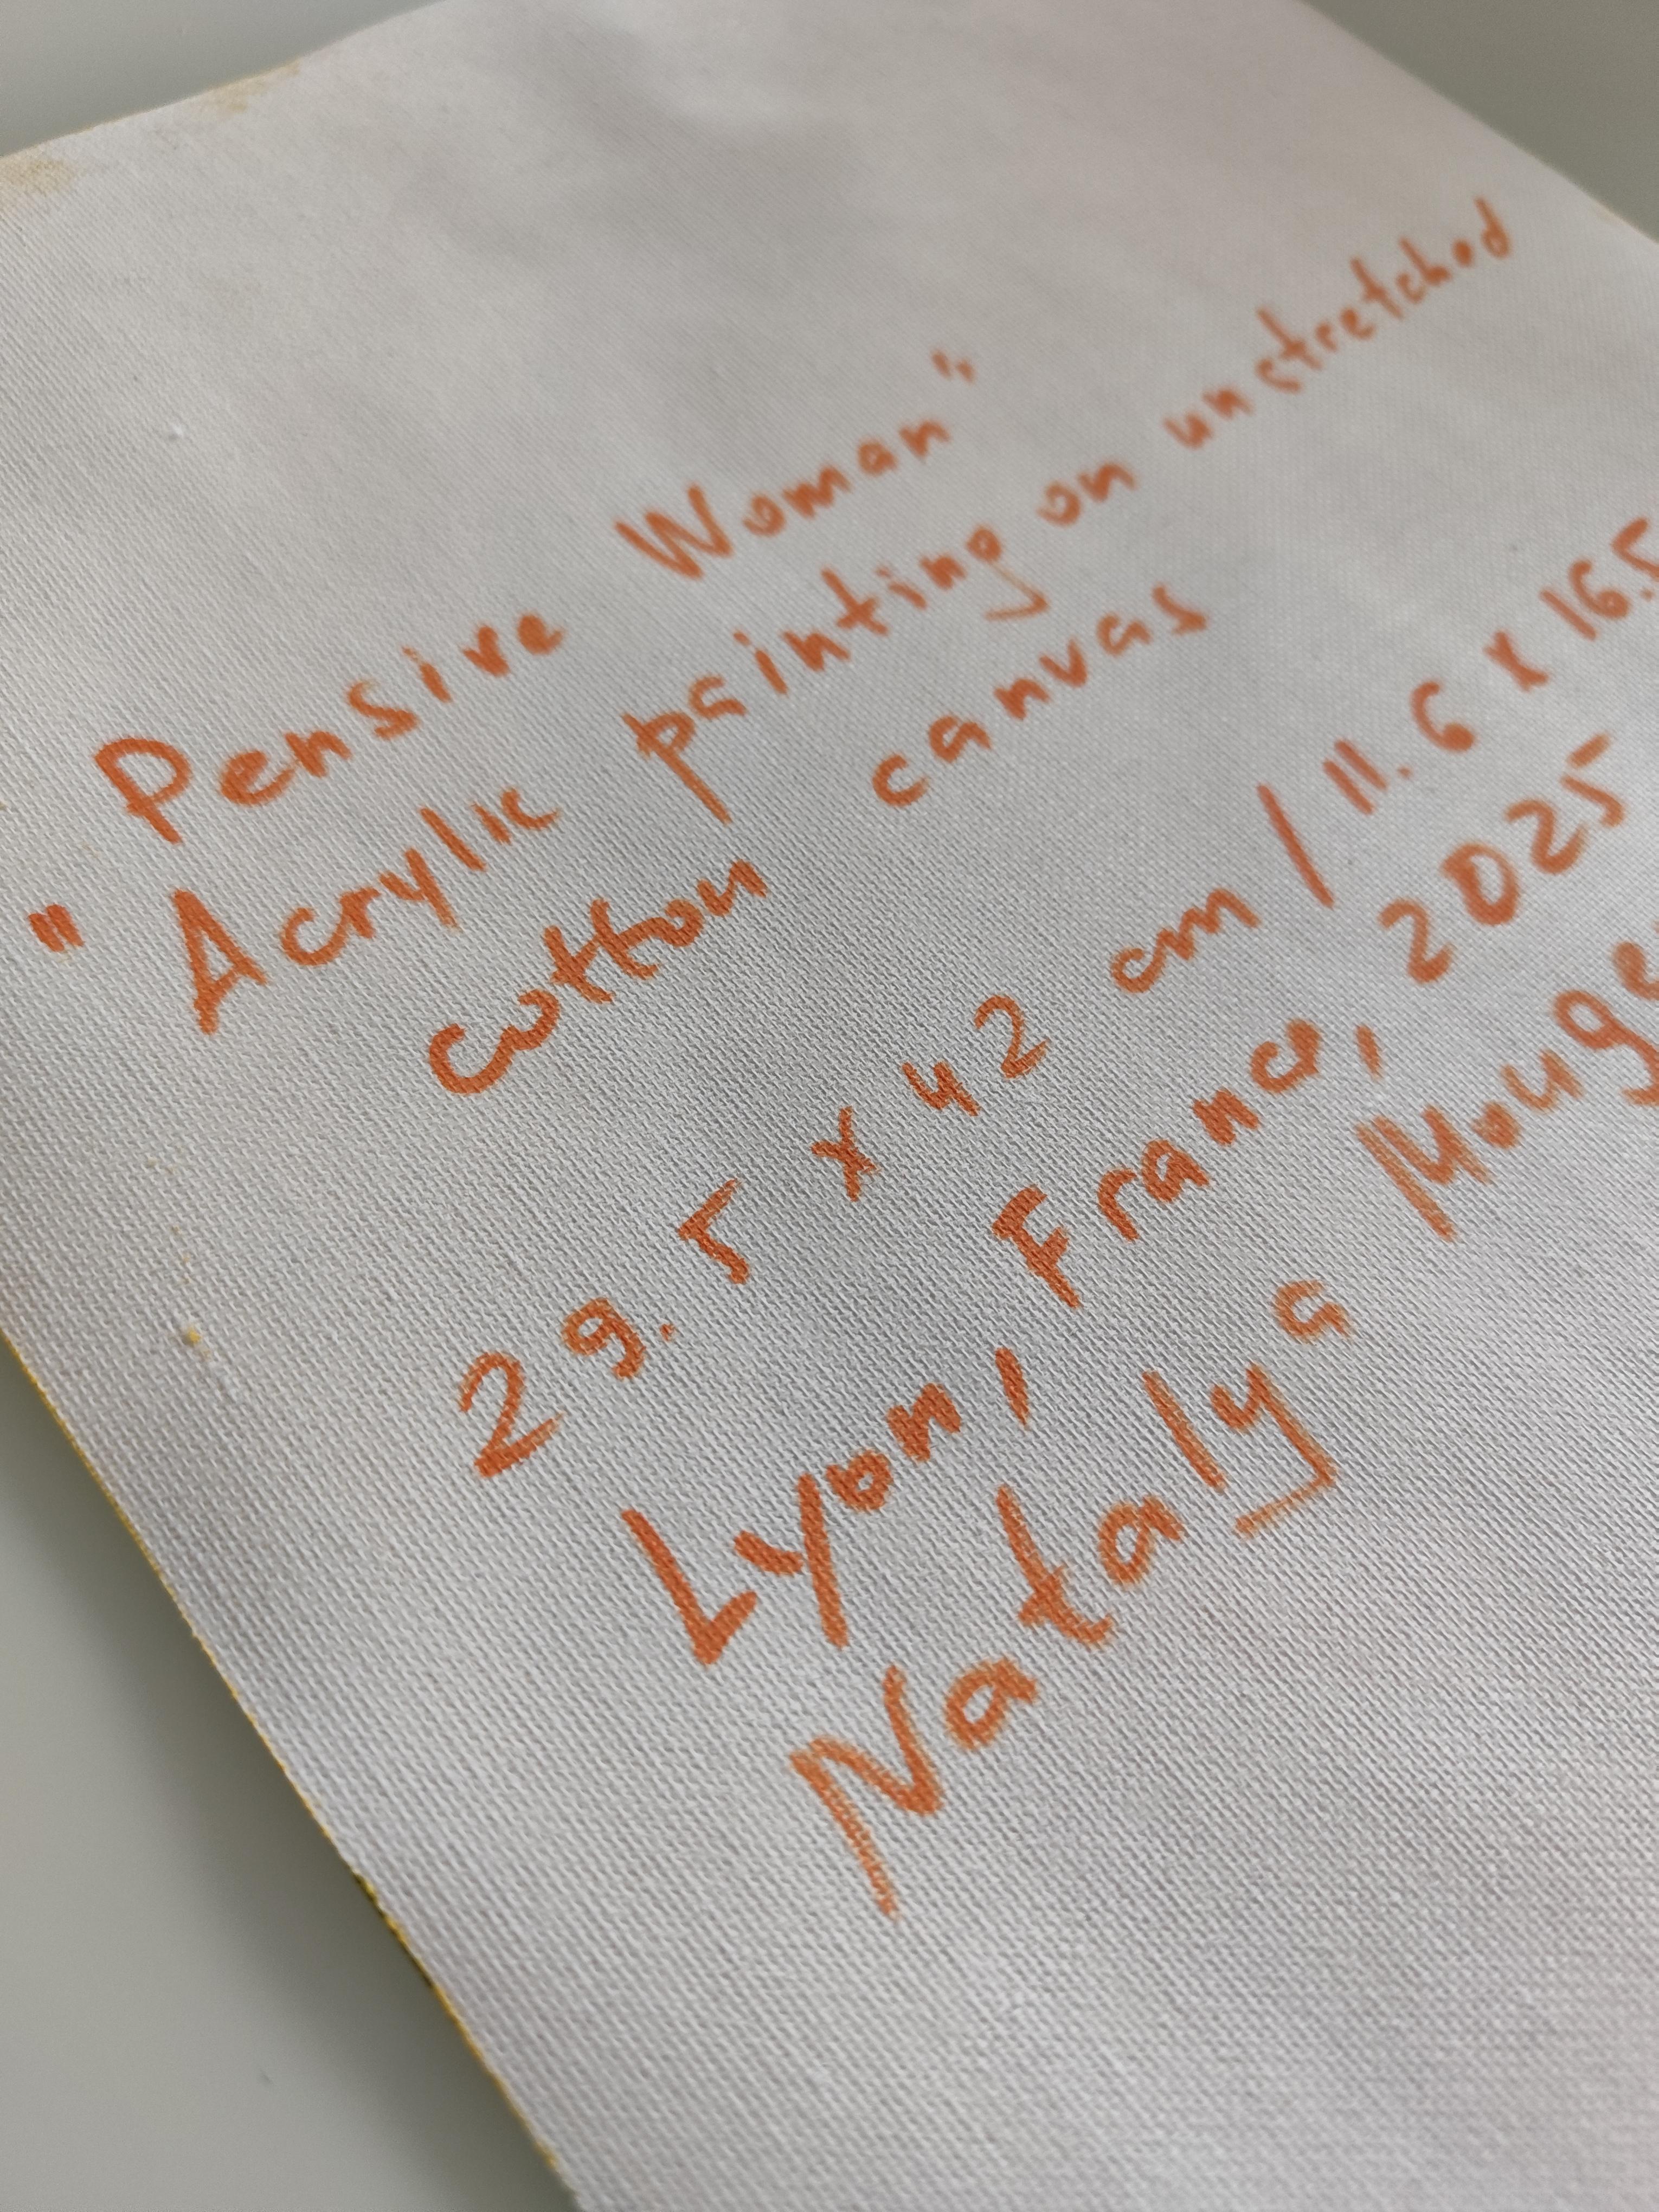 "Pensive Woman"
Acrylic painting on unstretched
cotton canvas
29.5 x 42 cm / 11.6 x 16.5
Lyon, France, 2025
Natalya